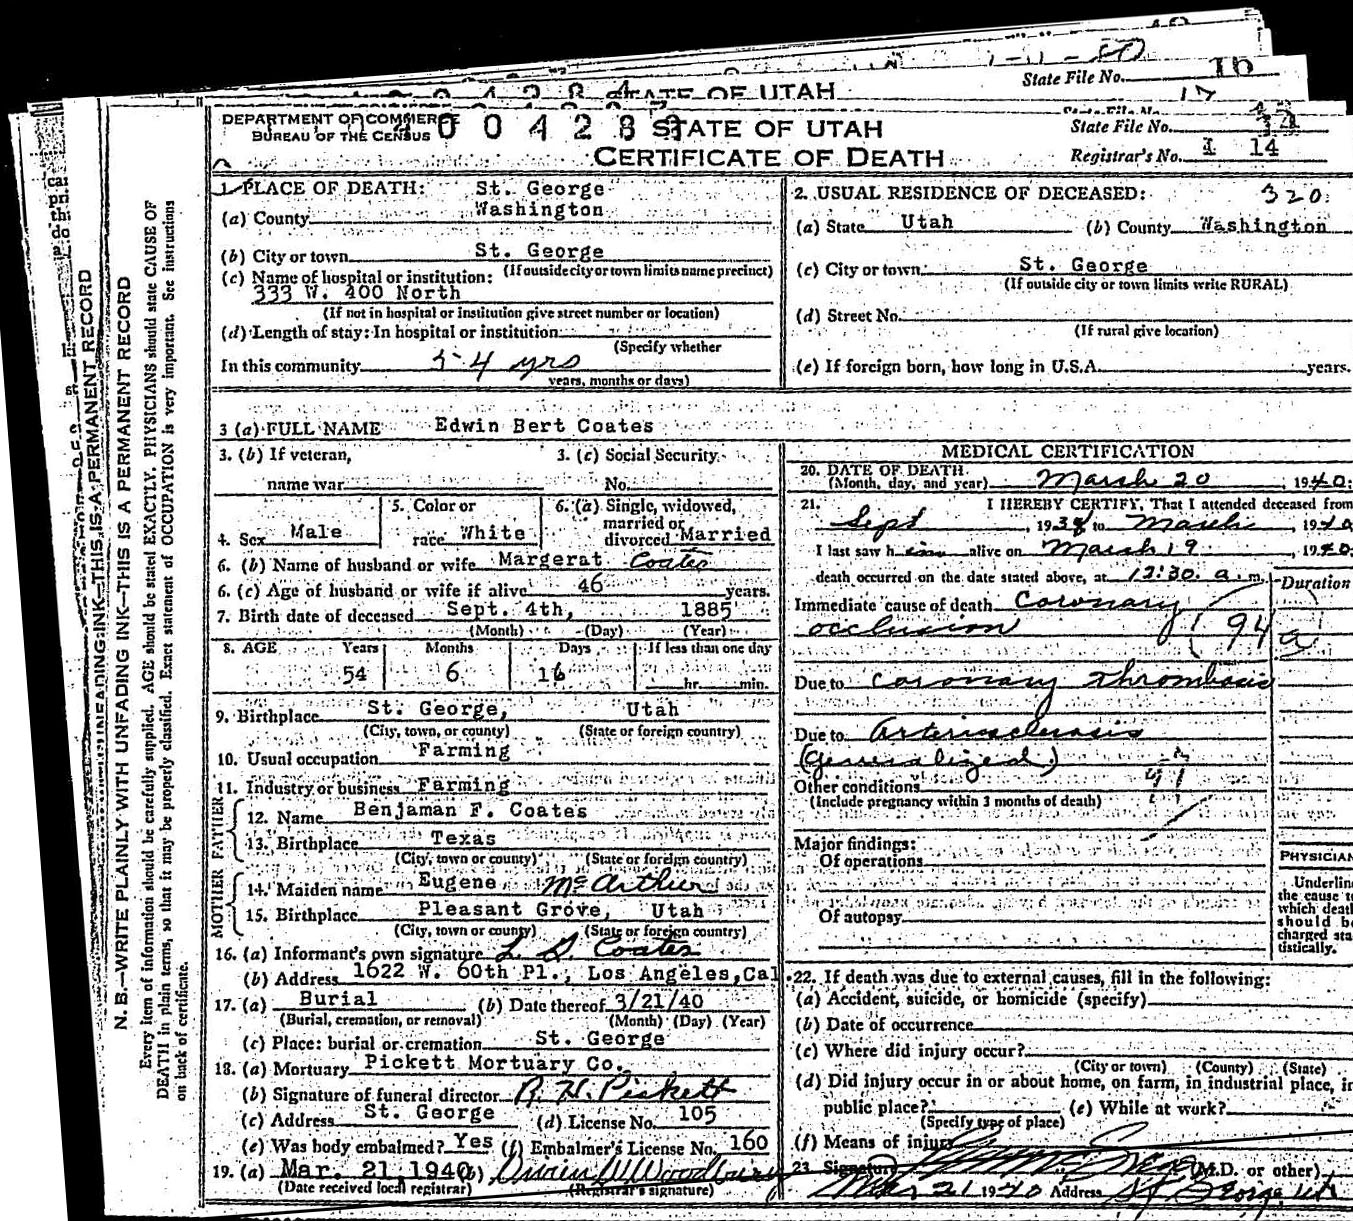 State File No. 16
STATE OF UTAH
17
DEPARTMENT OF COMMERCE
BUREAU OF THE CENSUS
STATE OF UTAH
State File No.
CERTIFICATE OF DEATH
Registrar's No. 14
N. B.—WRITE PLAINLY WITH UNFADING INK—THIS IS A PERMANENT RECORD
Every item of information should be carefully supplied. AGE should be stated EXACTLY. PHYSICIANS should state CAUSE OF
DEATH in plain terms, so that it may be properly classified. Exact statement of OCCUPATION is very important. See instructions
on back of certificate.
1. PLACE OF DEATH: St. George
(a) County Washington
(b) City or town St. George
(If outside city or town limits name precinct)
(c) Name of hospital or institution:
333 W. 400 North
(If not in hospital or institution give street number or location)
(d) Length of stay: In hospital or institution
(Specify whether
In this community 54 yrs
years, months or days)
2. USUAL RESIDENCE OF DECEASED: 320
(a) State Utah (b) County Washington
(c) City or town St. George
(If outside city or town limits write RURAL)
(d) Street No.
(If rural give location)
(e) If foreign born, how long in U.S.A. years.
3 (a) FULL NAME Edwin Bert Coates
3. (b) If veteran, 3. (c) Social Security
name war No.
4. Sex Male 5. Color or race White 6. (a) Single, widowed, married or divorced Married
6. (b) Name of husband or wife Margerat Coates
6. (c) Age of husband or wife if alive 46 years.
7. Birth date of deceased Sept. 4th, 1885
(Month) (Day) (Year)
8. AGE Years Months Days If less than one day
54 6 16 hr. min.
9. Birthplace St. George, Utah
(City, town, or county) (State or foreign country)
10. Usual occupation Farming
11. Industry or business Farming
FATHER
12. Name Benjaman F. Coates
13. Birthplace Texas
(City, town or county) (State or foreign country)
MOTHER
14. Maiden name Eugene McArthur
15. Birthplace Pleasant Grove, Utah
(City, town or county) (State or foreign country)
16. (a) Informant's own signature L S Coates
(b) Address 1622 W. 60th Pl., Los Angeles, Cal
17. (a) Burial (b) Date thereof 3/21/40
(Burial, cremation, or removal) (Month) (Day) (Year)
(c) Place: burial or cremation St. George
18. (a) Mortuary Pickett Mortuary Co.
(b) Signature of funeral director R. H. Pickett
(c) Address St. George (d) License No. 105
(e) Was body embalmed? Yes (f) Embalmer's License No. 160
19. (a) Mar. 21 1940 (b) Woodbury
(Date received local registrar) (Registrar's signature)
MEDICAL CERTIFICATION
20. DATE OF DEATH
(Month, day, and year) March 20, 1940
21. I HEREBY CERTIFY, That I attended deceased from
Sept, 193 to March, 1940
I last saw him alive on March 19, 1940
death occurred on the date stated above, at 12:30 a.m. Duration
Immediate cause of death Coronary
occlusion 94 a
Due to coronary thrombosis
Due to Arteriosclerosis
(Generalized)
Other conditions
(Include pregnancy within 3 months of death)
Major findings:
Of operations
Of autopsy
PHYSICIAN
Underline
the cause to
which death
should be
charged sta-
tistically.
22. If death was due to external causes, fill in the following:
(a) Accident, suicide, or homicide (specify)
(b) Date of occurrence
(c) Where did injury occur?
(City or town) (County) (State)
(d) Did injury occur in or about home, on farm, in industrial place, in
public place? (e) While at work?
(Specify type of place)
(f) Means of injury
23 Signature (M.D. or other)
Mar 21 1940 Address St George, Ut